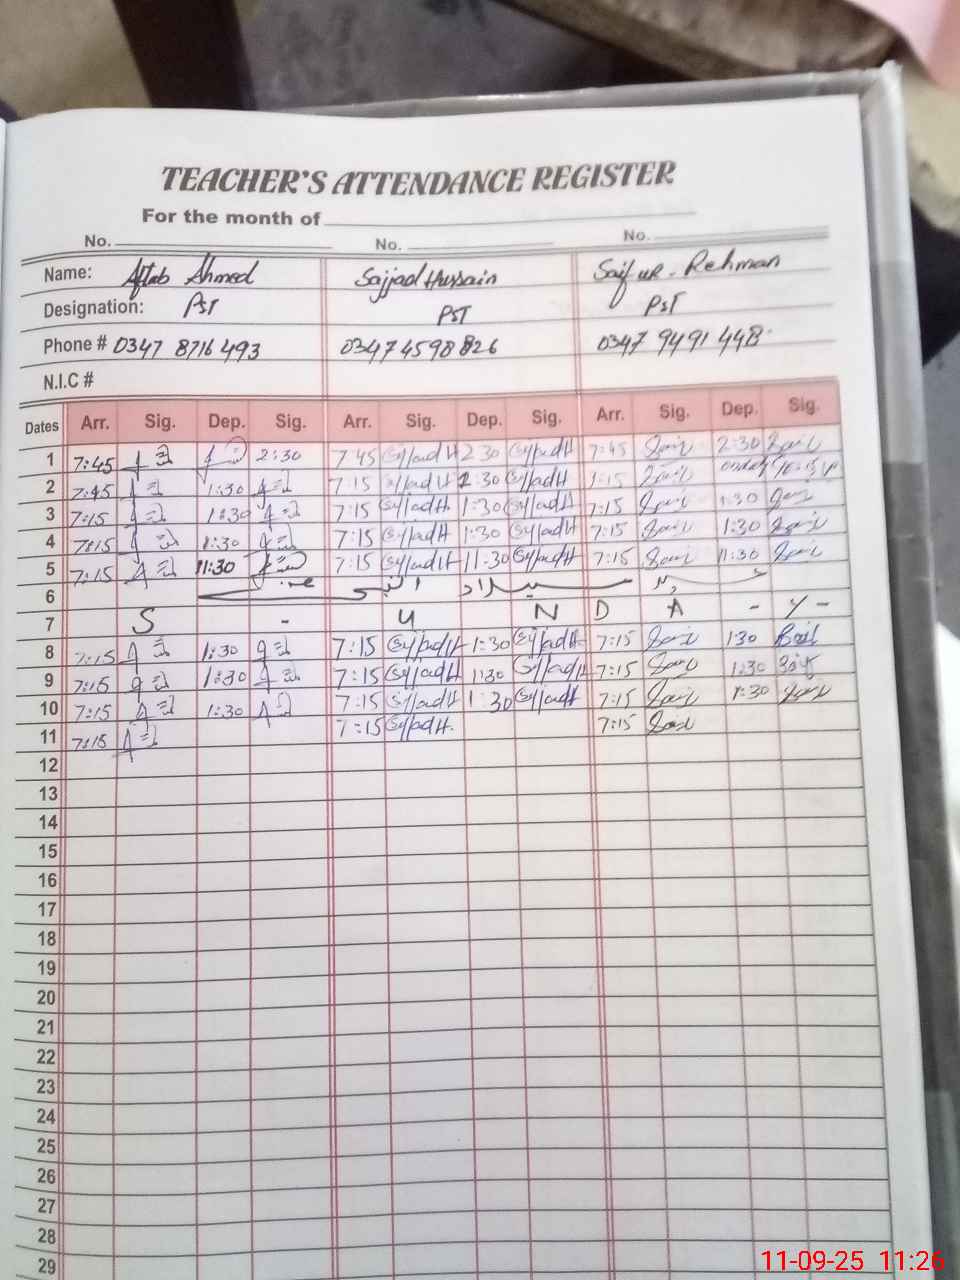 TEACHER'S ATTENDANCE REGISTER
For the month of
No. No. No.
Name: Aftab Ahmed Sajjad Hussain Saif ur-Rehman
Designation: PST PST PST
Phone # 0347 8716 493 0347 4598 826 0347 9491 448
N.I.C #
Dates Arr. Sig. Dep. Sig. Arr. Sig. Dep. Sig. Arr. Sig. Dep. Sig.
1 7:45 2:30 7 45 SajjadH 2 30 SajjadH 7:45 Saif 2:30 Saif
2 7:45 1:30 7:15 SajjadH 1:30 SajjadH 1:15 Saif
3 7:15 1:30 7:15 SajjadH 1:30 SajjadH 7:15 Saif 1:30 Saif
4 7:15 1:30 7:15 SajjadH 1:30 SajjadH 7:15 Saif 1:30 Saif
5 7:15 11:30 7:15 SajjadH 11:30 SajjadH 7:15 Saif 11:30 Saif
6 عید میلاد النبی
7 S - U N D A - Y -
8 7:15 1:30 7:15 SajjadH 1:30 SajjadH 7:15 Saif 1:30 Saif
9 7:15 1:30 7:15 SajjadH 1:30 SajjadH 7:15 Saif 1:30 Saif
10 7:15 1:30 7:15 SajjadH 1:30 SajjadH 7:15 Saif 1:30 Saif
11 7:15 7:15 SajjadH. 7:15 Saif
12
13
14
15
16
17
18
19
20
21
22
23
24
25
26
27
28
29
11-09-25 11:26